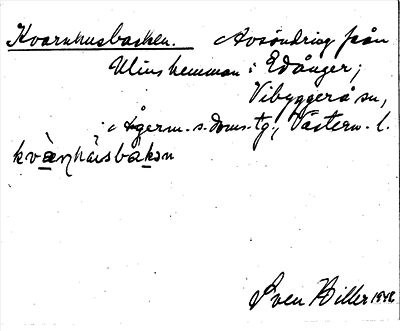 Kvarnhusbacken. Avsöndring från
Ulins hemman i Edånger;
Vibyggerå sn,
Ågerm. s. doms. tg., Västern. l.
kvàrn̥hùsbakan
Sven Hiller 1942